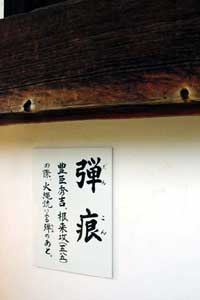 弾痕
豊臣秀吉、根来攻(一五八五)
の際、火縄銃による弾のあと。